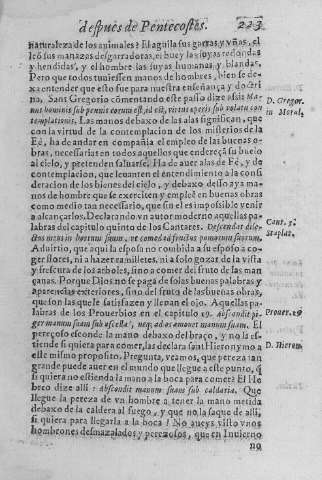 despues de Pentecostes. 223
naturaleza de los animales? El aguila sus garras y vñas, el
leō sus manazas desgarradoras, el buey las suyas redondas
y hendidas, y el hombre las suyas humanas, y blandas.
Pero que todos tuuiessen manos de hombres, bien se de-
xa entender que esto fue para nuestra enseñança y doctri
na. Sant Gregorio cōmentando este passo dize assi: Ma
nus hominis sub pennis eorum est, id est, virtus operis sub volatu con
templationis. Las manos debaxo de las alas significan, que
con la virtud de la contemplacion de los misterios de la
Fè, ha de andar en compañia el empleo de las buenas o-
bras, necessarias en todos aquellos que endereçã su buelo
al cielo, y pretenden saluarse. Ha de auer alas de Fè, y de
contemplacion, que leuanten el entendimiento a la consi
deracion de los bienes del cielo, y debaxo dessas aya ma-
nos de hombre que se exerciten y empleē en buenas obras
como medio tan necessario, que sin el es impossible venir
a alcançarlos. Declarando vn autor moderno aquellas pa-
labras del capitulo quinto de los Cantares. Descendat dile-
ctus meus in hortum suum, vt comedat fructus pomorum suorum.
Aduirtio, que aqui la esposa no combida a su esposo a co-
ger flores, ni a hazer ramilletes, ni a solo gozar de la vista
y frescura de los arboles, sino a comer del fruto de las man
çanas. Porque Dios no se paga de solas buenas palabras y
apariencias exteriores, sino del fruto de las buenas obras,
que son las que le satisfazen y llenan el ojo. Aquellas pa-
labras de los Prouerbios en el capitulo 19. Abscondit pi-
ger manum suam sub ascella, neq; ad os admouet manum suam. El
pereçoso esconde la mano debaxo del braço, y no la es-
tiende si quiera para comer, las declara Sant Hieronymo a
este mismo proposito. Pregunta, veamos, que pereza tan
grande puede auer en el mundo que llegue a este punto, q̄
si quiera no estienda la mano a la boca para comer? El He
breo dize alli: Abscondit manum suam sub caldaria. Que
llegue la pereza de vn hombre a tener la mano metida
debaxo de la caldera al fuego, y que no la saque de alli,
si quiera para llegarla a la boca? No aueys visto vnos
hombrones desmazalados y pereçosos, que en Inuierno
no
D. Gregor.
in Moral.
Cant. 5.
Staplet.
Prouer. 19
D. Hieron.